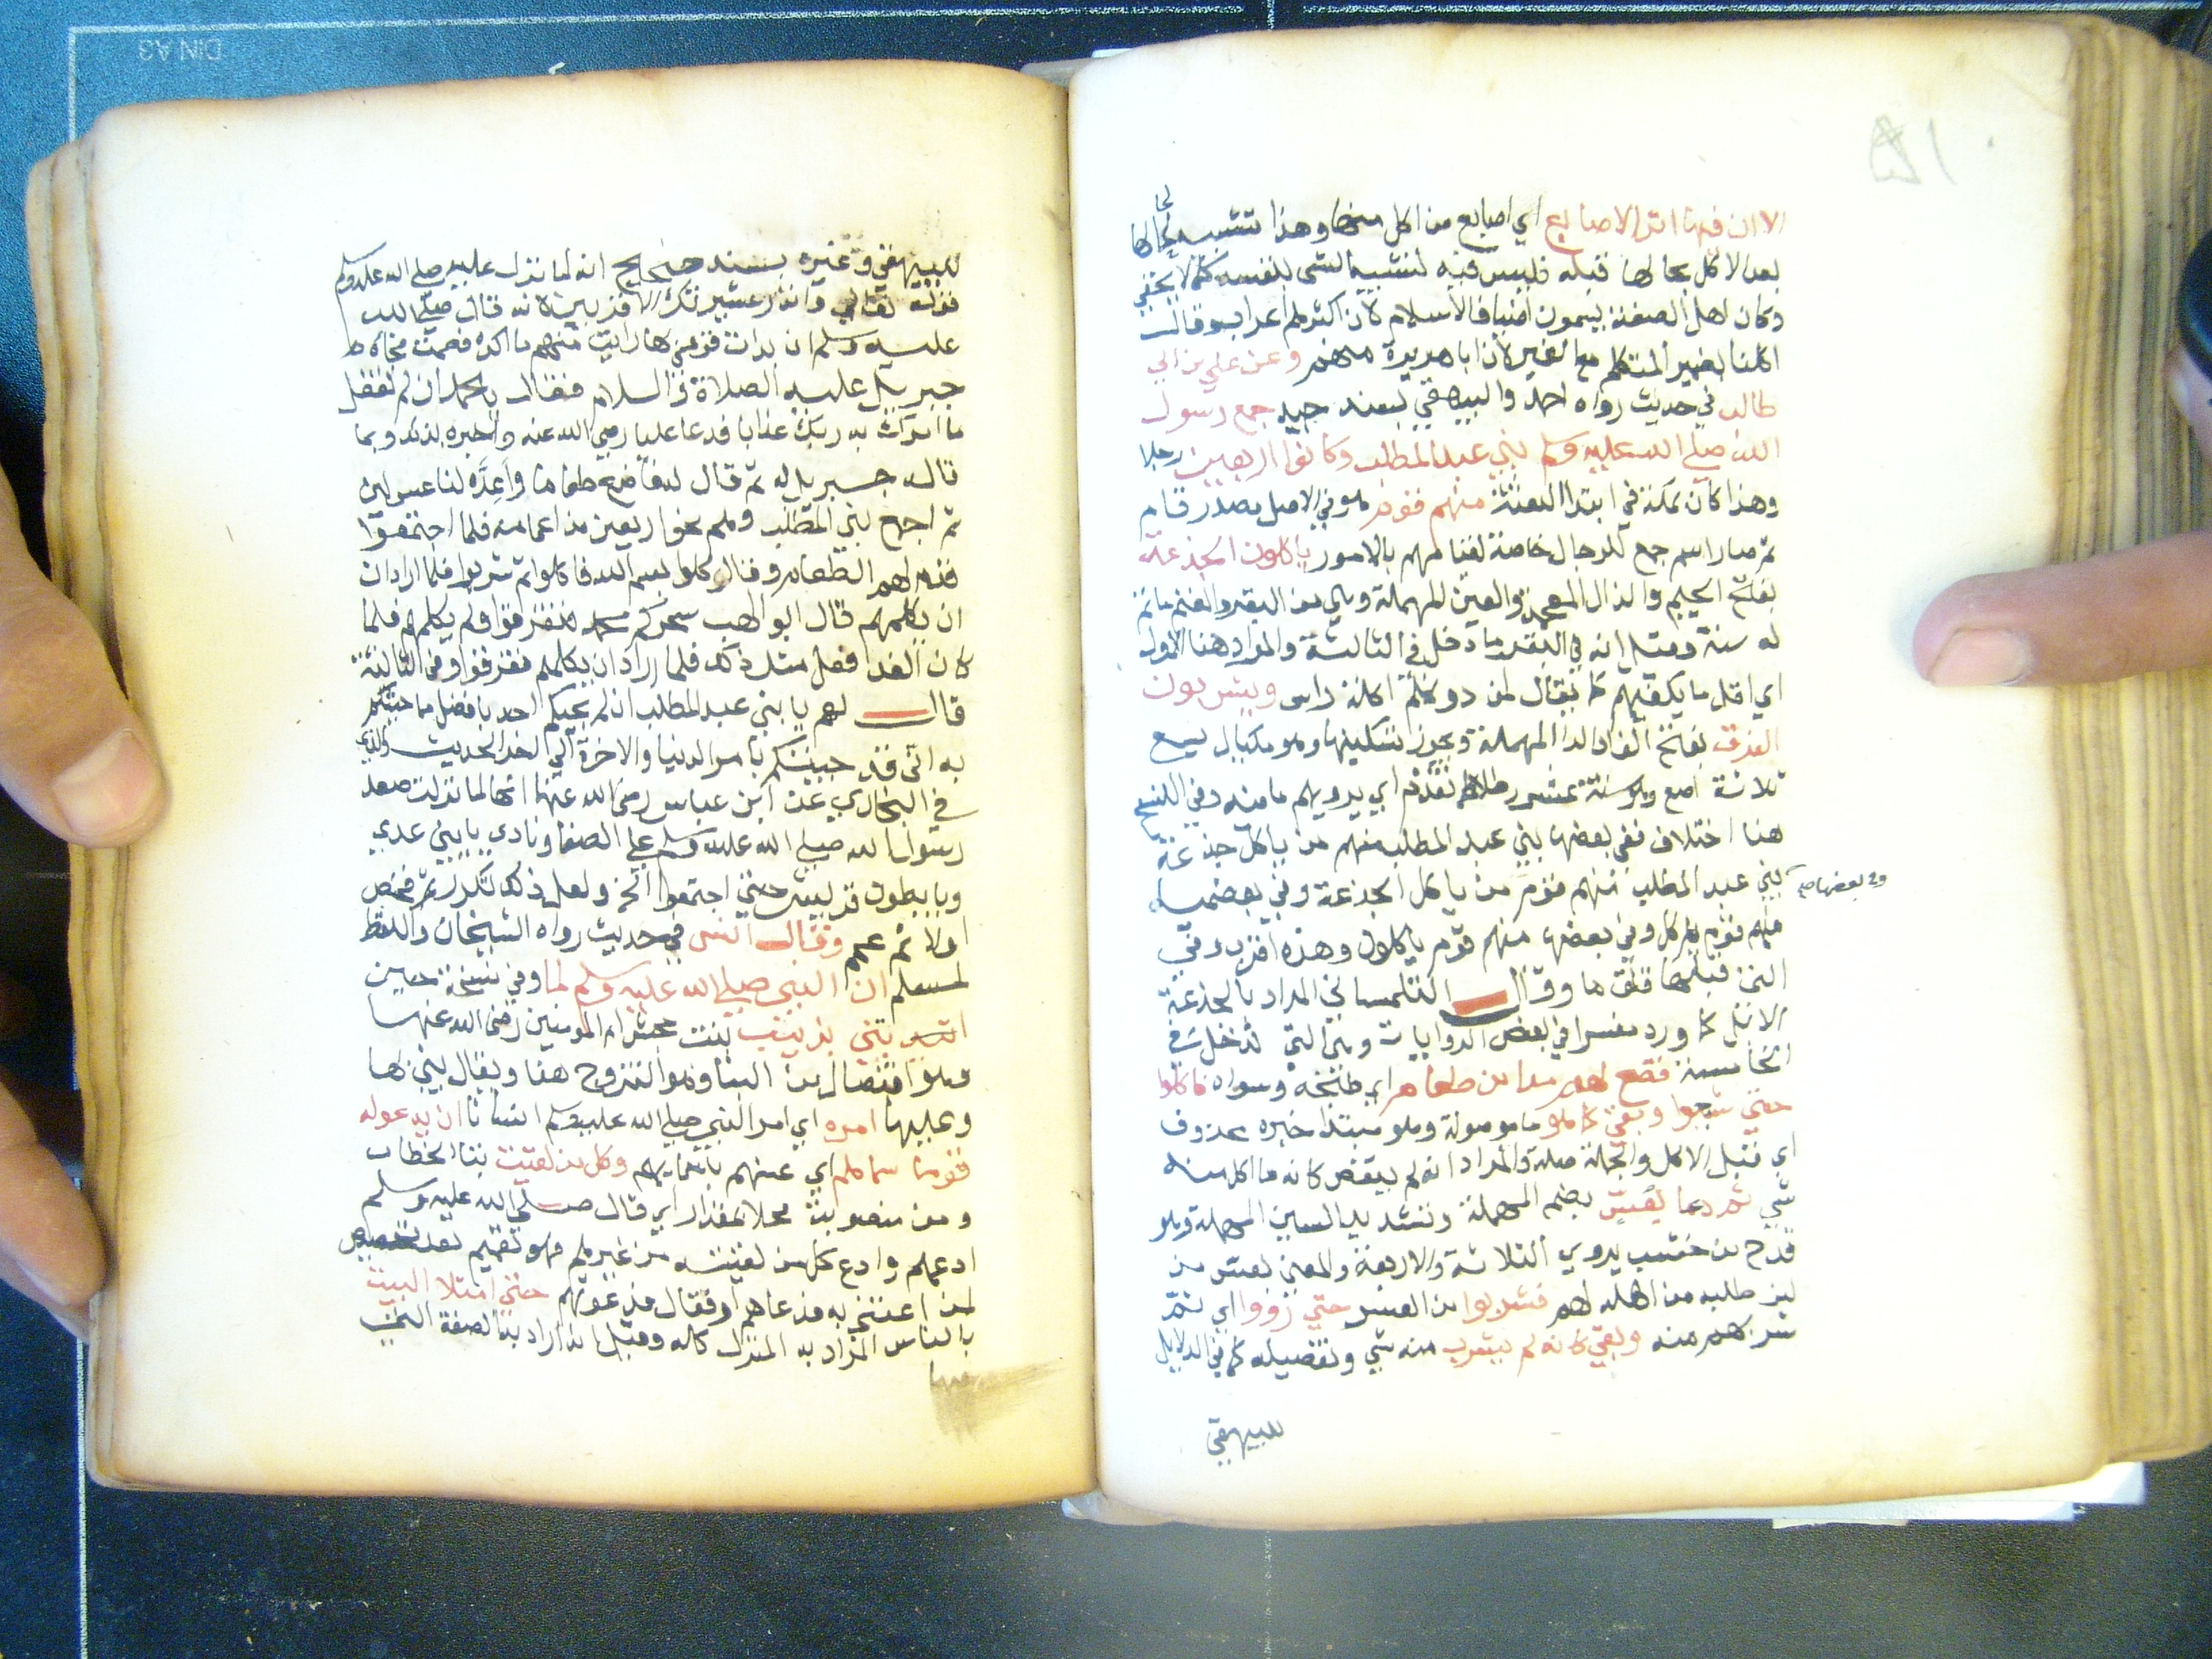 الا ان فيها اثر الاصابع اي اصابع من اكل منها وهذا تشبيه لحالها
بعد الاكل بحالها قبله فليس فيه تشبيه الشي بنفسه كما لا يخفي
وكان اهل الصفة يسمون اضياف الاسلام لان اكثرهم اعراب وقال
اكلنا بضمير المتكلم مع الغير لان ابا هريرة منهم وعن علي بن ابي
طالب في حديث رواه احمد والبيهقي بسند جيد جمع رسول
الله صلي الله عليه وسلم بني عبد المطلب وكانوا اربعين رجلا
وهذا كان بمكة في ابتدا البعثة منهم قوم هو في الاصل مصدر قام
ثم صار اسم جمع للرجال خاصة لقيامهم بالامور ياكلون الجذعة
بفتح الجيم والذال المعجمة والعين المهملة وهي من البقر والغنم ما تم
له سنة وقيل انه في البقر ما دخل في الثالثة والمراد هنا الاول
اي اقل ما يكفيهم كما يقال لمن دونهم اكلة راس ويشربون
الفرق بفتح الفا والرا المهملة ويجوز تسكينها وهو مكيال يسع
ثلاثة اصع وهو ستة عشر رطلا كما تقدم اي يرويهم ما فيه وفي النسخ
هنا اختلاف ففي بعضها بني عبد المطلب منهم من ياكل جذعة
وفي بعضها صح
بني عبد المطلب منهم قوم من ياكل الجذعة وفي بعضها
منهم قوم ياكل وفي بعضها منهم قوم ياكلون وهذه اقرب وفي
التي قبلها قلق ما وقال التلمساني المراد بالجذعة
الابل كما ورد مفسرا في بعض الروايات وهي التي تدخل في
الخامسة فصنع لهم مدا من طعام اي طبخه وسواه فاكلوا
حتي شبعوا وبقي كما هو ما موصولة وهو مبتدا خبره محذوف
اي قبل الاكل والجملة صلة والمراد انه لم ينقص كانه ما اكل منه
شي ثم دعا بعس بضم المهملة وتشديد السين المهملة وهو
قدح من خشب يروي الثلاثة والاربعة والمعني بعس من
لبن طلبه من اهله لهم فشربوا من العس حتي رووا اي تم
شربهم منه وبقي كانه لم يشرب منه شي وتفصيله كما في الدلايل
للبيهقي
للبيهقي وغيره بسند صحيح انه لما نزل عليه صلي الله عليه وسلم
قوله تعالي وانذر عشيرتك الاقربين الاية قال صلي الله
عليه وسلم ان بدات قومي بها رايت منهم ما اكره فصمت فجاءه
جبريل عليه الصلاة والسلام فقال يا محمد ان لم تفعل
ما امرك به ربك عذابا فدعا عليا رضي الله عنه واخبره بذلك وبما
قال جبريل له ثم قال له فاصنع طعاما واعد لنا عس لبن
ثم اجمع بني المطلب وهم نحو اربعين من اعمامه فلما اجتمعوا
قدم لهم الطعام وقال كلوا بسم الله فاكلوا ثم شربوا فلما اراد ان
ان يكلمهم قال ابو لهب سحركم محمد فتفرقوا ولم يكلمهم فلما
كان الغد فعل مثل ذلك فلما اراد ان يكلمهم تفرقوا وفي الثالثة
قال لهم يا بني عبد المطلب ان لم يجيكم احد بافضل مما جيتكم
به اني قد جيتكم بامر الدنيا والاخرة الي اخر الحديث والذي
في البخاري عن ابن عباس رضي الله عنهما انها لما نزلت صعد
رسول الله صلي الله عليه وسلم علي الصفا ونادي يا بني عدي
ويا بطون قريش حتي اجتمعوا الخ ولعل ذلك تكرر ثم فخص
اولا ثم عمم وقال انس في حديث رواه الشيخان واللفظ
لمسلم ان النبي صلي الله عليه وسلم لما وفي نسخة حين
ابتني بزينب بنت جحش ام المومنين رضي الله عنها
وهو افتعال من البنا وهو التزوج هنا ويقال بني بها
وعليها امره اي امر النبي صلي الله عليه وسلم انسانا ان يدعو له
قوما سماهم اي عينهم باسمايهم وكل من لقيت بتا الخطاب
ومن منصوبة محلا بمقدر اي قال صلي الله عليه وسلم
ادعهم وادع كل من لقيته من غيرهم فهو تعميم بعد تخصيص
لمن اعتني به فدعاهم او فقال فدعوتهم حتي امتلا البيت
بالناس المراد به المنزل كله وقيل انه اراد به الصفة التي